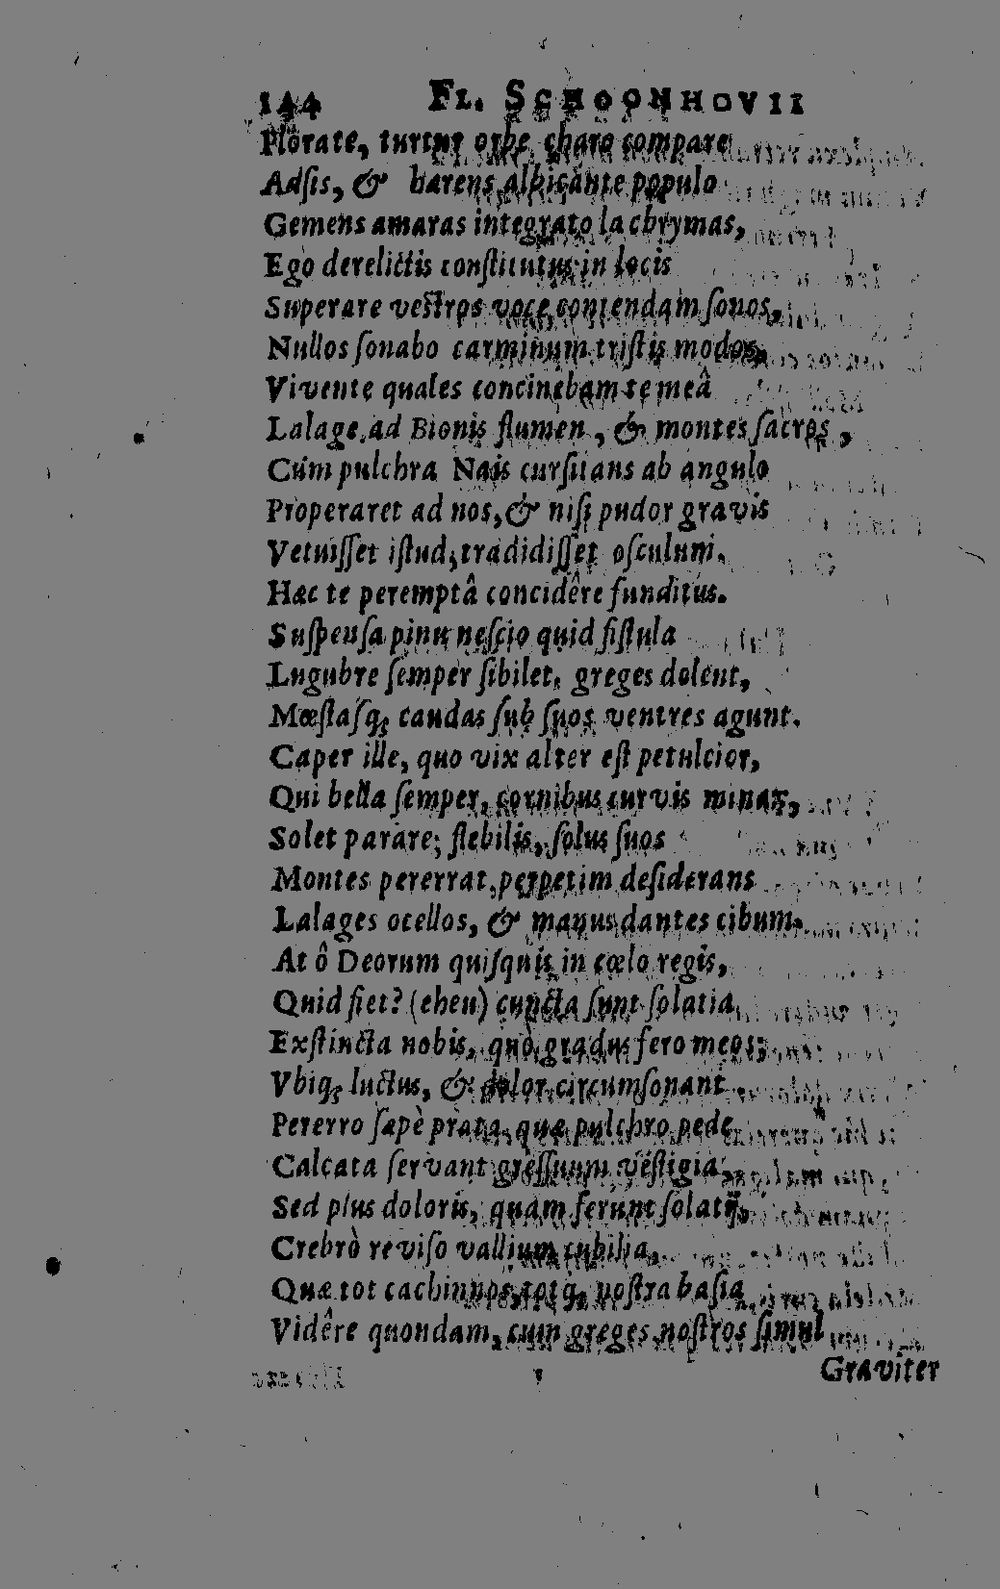 144 FL. SCHOONHOVII
Plorate, turtur orbe charo compare
Adſis, & harens albicante populo
Gemens amaras integrato lachrymas,
Ego derelictis conſtitutus in locis
Superare veſtros voce contendam ſonos,
Nullos ſonabo carminum triſtis modos,
Vivente quales concinebam te meâ
Lalage, ad Bionis flumen, & montes ſacros,
Cùm pulchra Nais curſitans ab angulo
Properaret ad nos, & niſi pudor gravis
Vetuiſſet iſtud, tradidiſſet oſculum.
Hac te peremptâ concidêre funditus.
Suſpenſa pinu neſcio quid fiſtula
Lugubre ſemper ſibilet. greges dolent,
Mœſtaſq; caudas ſub ſuos ventres agunt.
Caper ille, quo vix alter eſt petulcior,
Qui bella ſemper, cornibus curvis minax,
Solet parare; flebilis, ſolus ſuos
Montes pererrat, perpetim deſiderans
Lalages ocellos, & manus dantes cibum.
At ô Deorum quiſquis in cœlo regis,
Quid fiet? (eheu) cuncta ſunt ſolatia
Exſtincta nobis, quò gradus fero meos;
Vbiq; luctus, & dolor circumſonant.
Pererro ſæpè prata, quæ pulchro pede
Calcata ſervant greſſuum veſtigia,
Sed plus doloris, quàm ferunt ſolatij,
Crebrò reviſo vallium cubilia,
Quæ tot cachinnos, totq; noſtra baſia
Vidêre quondam, cum greges noſtros ſimul
Graviter